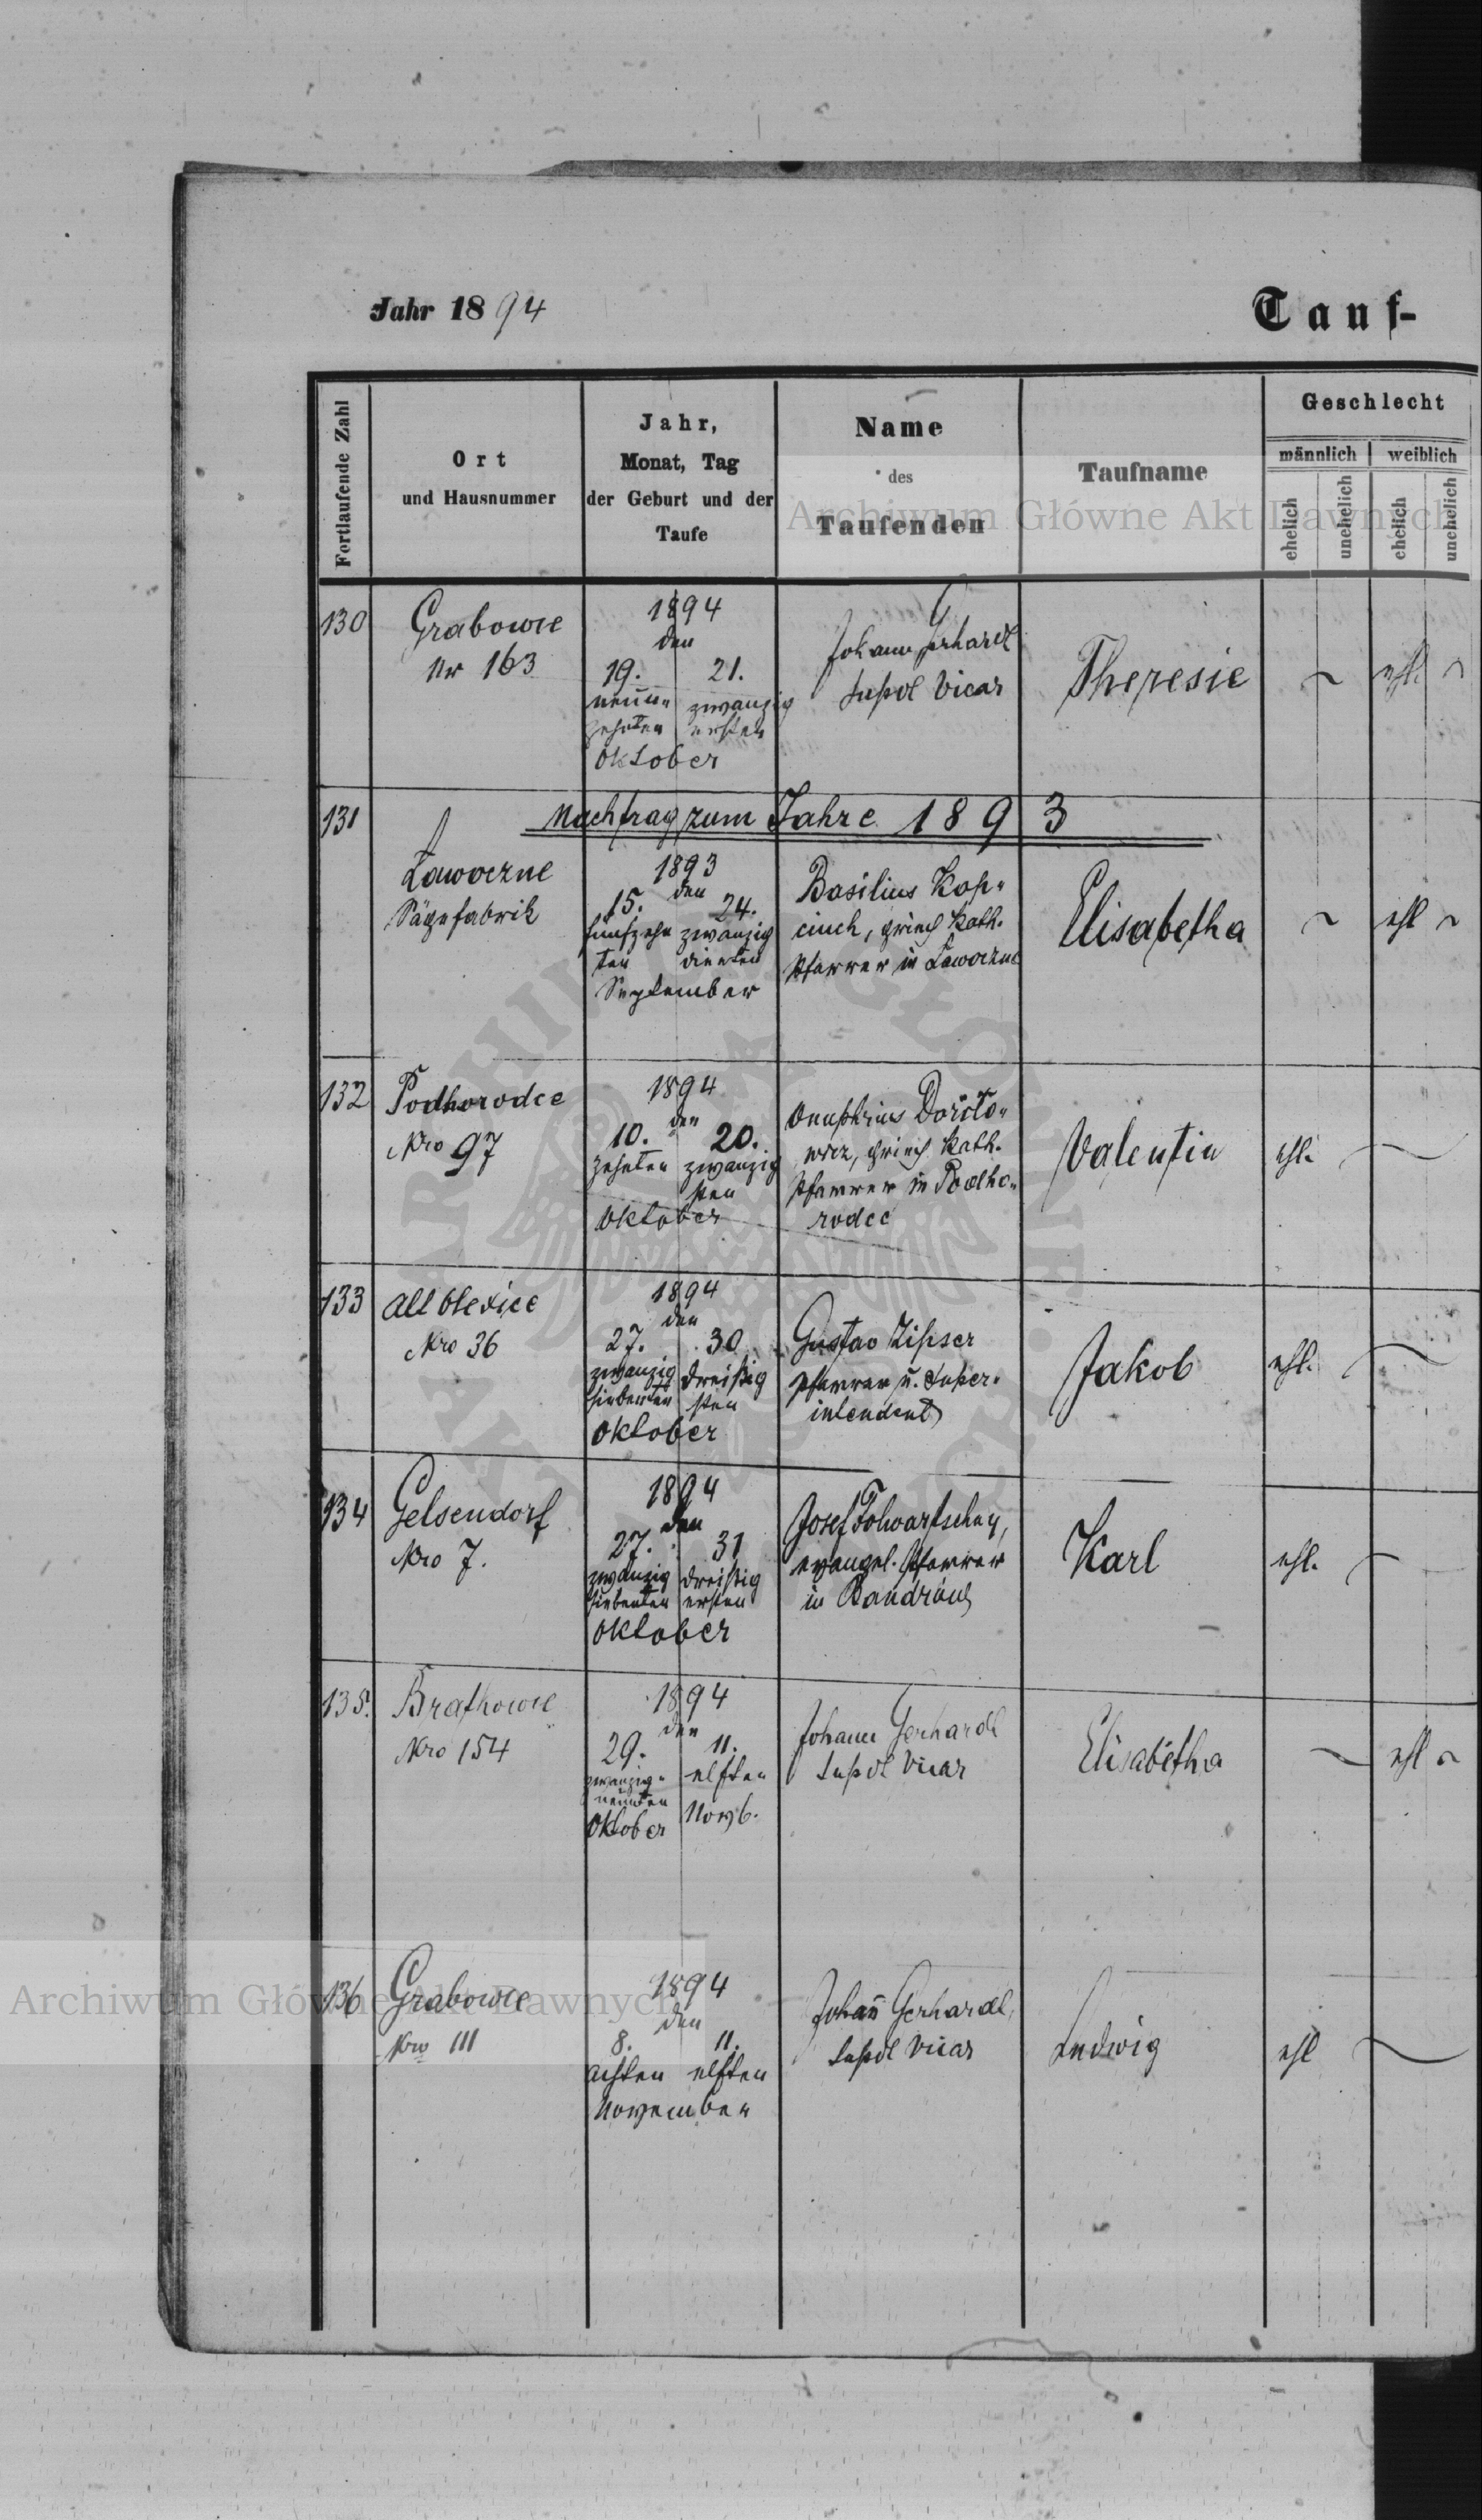 Jahr 1894
Tauf-
Fortlaufende Zahl
Ort
und Hausnummer
Jahr,
Monat, Tag
der Geburt und der
Taufe
Name
des
Taufenden
Taufname
Geschlecht
männlich weiblich
ehelich unehelich ehelich unehelich
Archiwum Główne Akt Dawnych
130
Grabowce
Nr 163
1894
den
19. 21.
neun- zwanzig
zehnten ersten
Oktober
Johann Gerhardt
Supdt Vicar
Theresie
ehl.
131
Nachtrag zum Jahre 1893
Lawoczne
Sägefabrik
1893
den
15. 24.
fünfzehn zwanzig
ten vierten
September
Basilius Kop-
ciuch, griech kath.
Pfarrer in Lawoczne
Elisabetha
ehl
132
Podhorodce
Nro 97
1894
den
10. 20.
zehnten zwanzig
sten
Oktober
Onuphrius
griech kath.
Pfarrer in Podho-
rodce
Valentin
ehl.
133
Alt Olexice
Nro 36
1894
den
27. 30
zwanzig dreißig
siebenten sten
Oktober
Gustav Zipser
Pfarrer u. Super-
intendent
Jakob
ehl.
134
Gelsendorf
Nro 7.
1894
den
27. 31
zwanzig dreißig
siebenten ersten
Oktober
Josef Folwartschny,
evangel. Pfarrer
in Bandrów
Karl
ehl.
135.
Bratkowce
Nro 154
1894
den
29. 11.
zwanzig- elften
neunten
Oktober Novb.
Johann Gerhardt
Supdt Vicar
Elisabetha
ehl
136
Grabowce
Nro 111
1894
den
8. 11.
achten elften
November
Johan̄ Gerhardt,
Supdt Vicar
Ludwig
ehl
Archiwum Główne Akt Dawnych